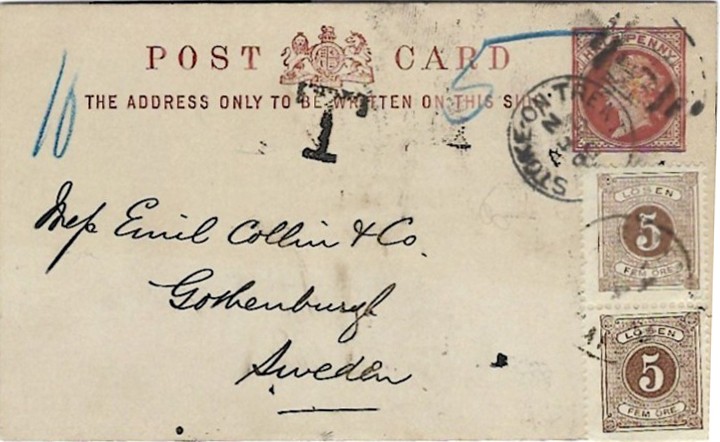 POST CARD
THE ADDRESS ONLY TO BE WRITTEN ON THIS SIDE
10
5
T
PENNY
STOKE-ON-TRENT
LÖSEN
5
FEM ÖRE
LÖSEN
5
FEM ÖRE
Mess Emil Collin & Co.
Gothenburgh
Sweden